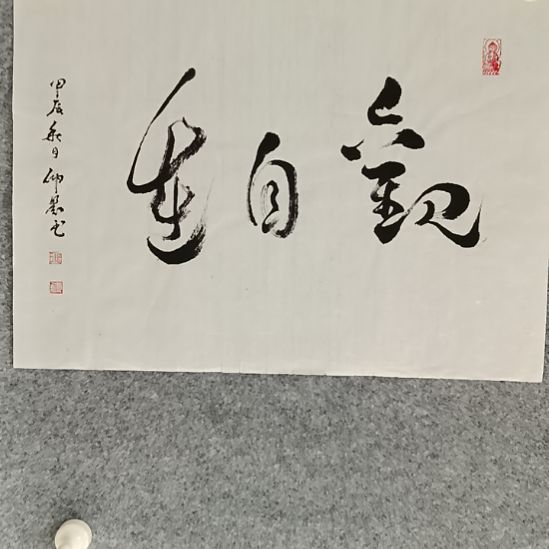 觀自在
甲辰秋日仲書